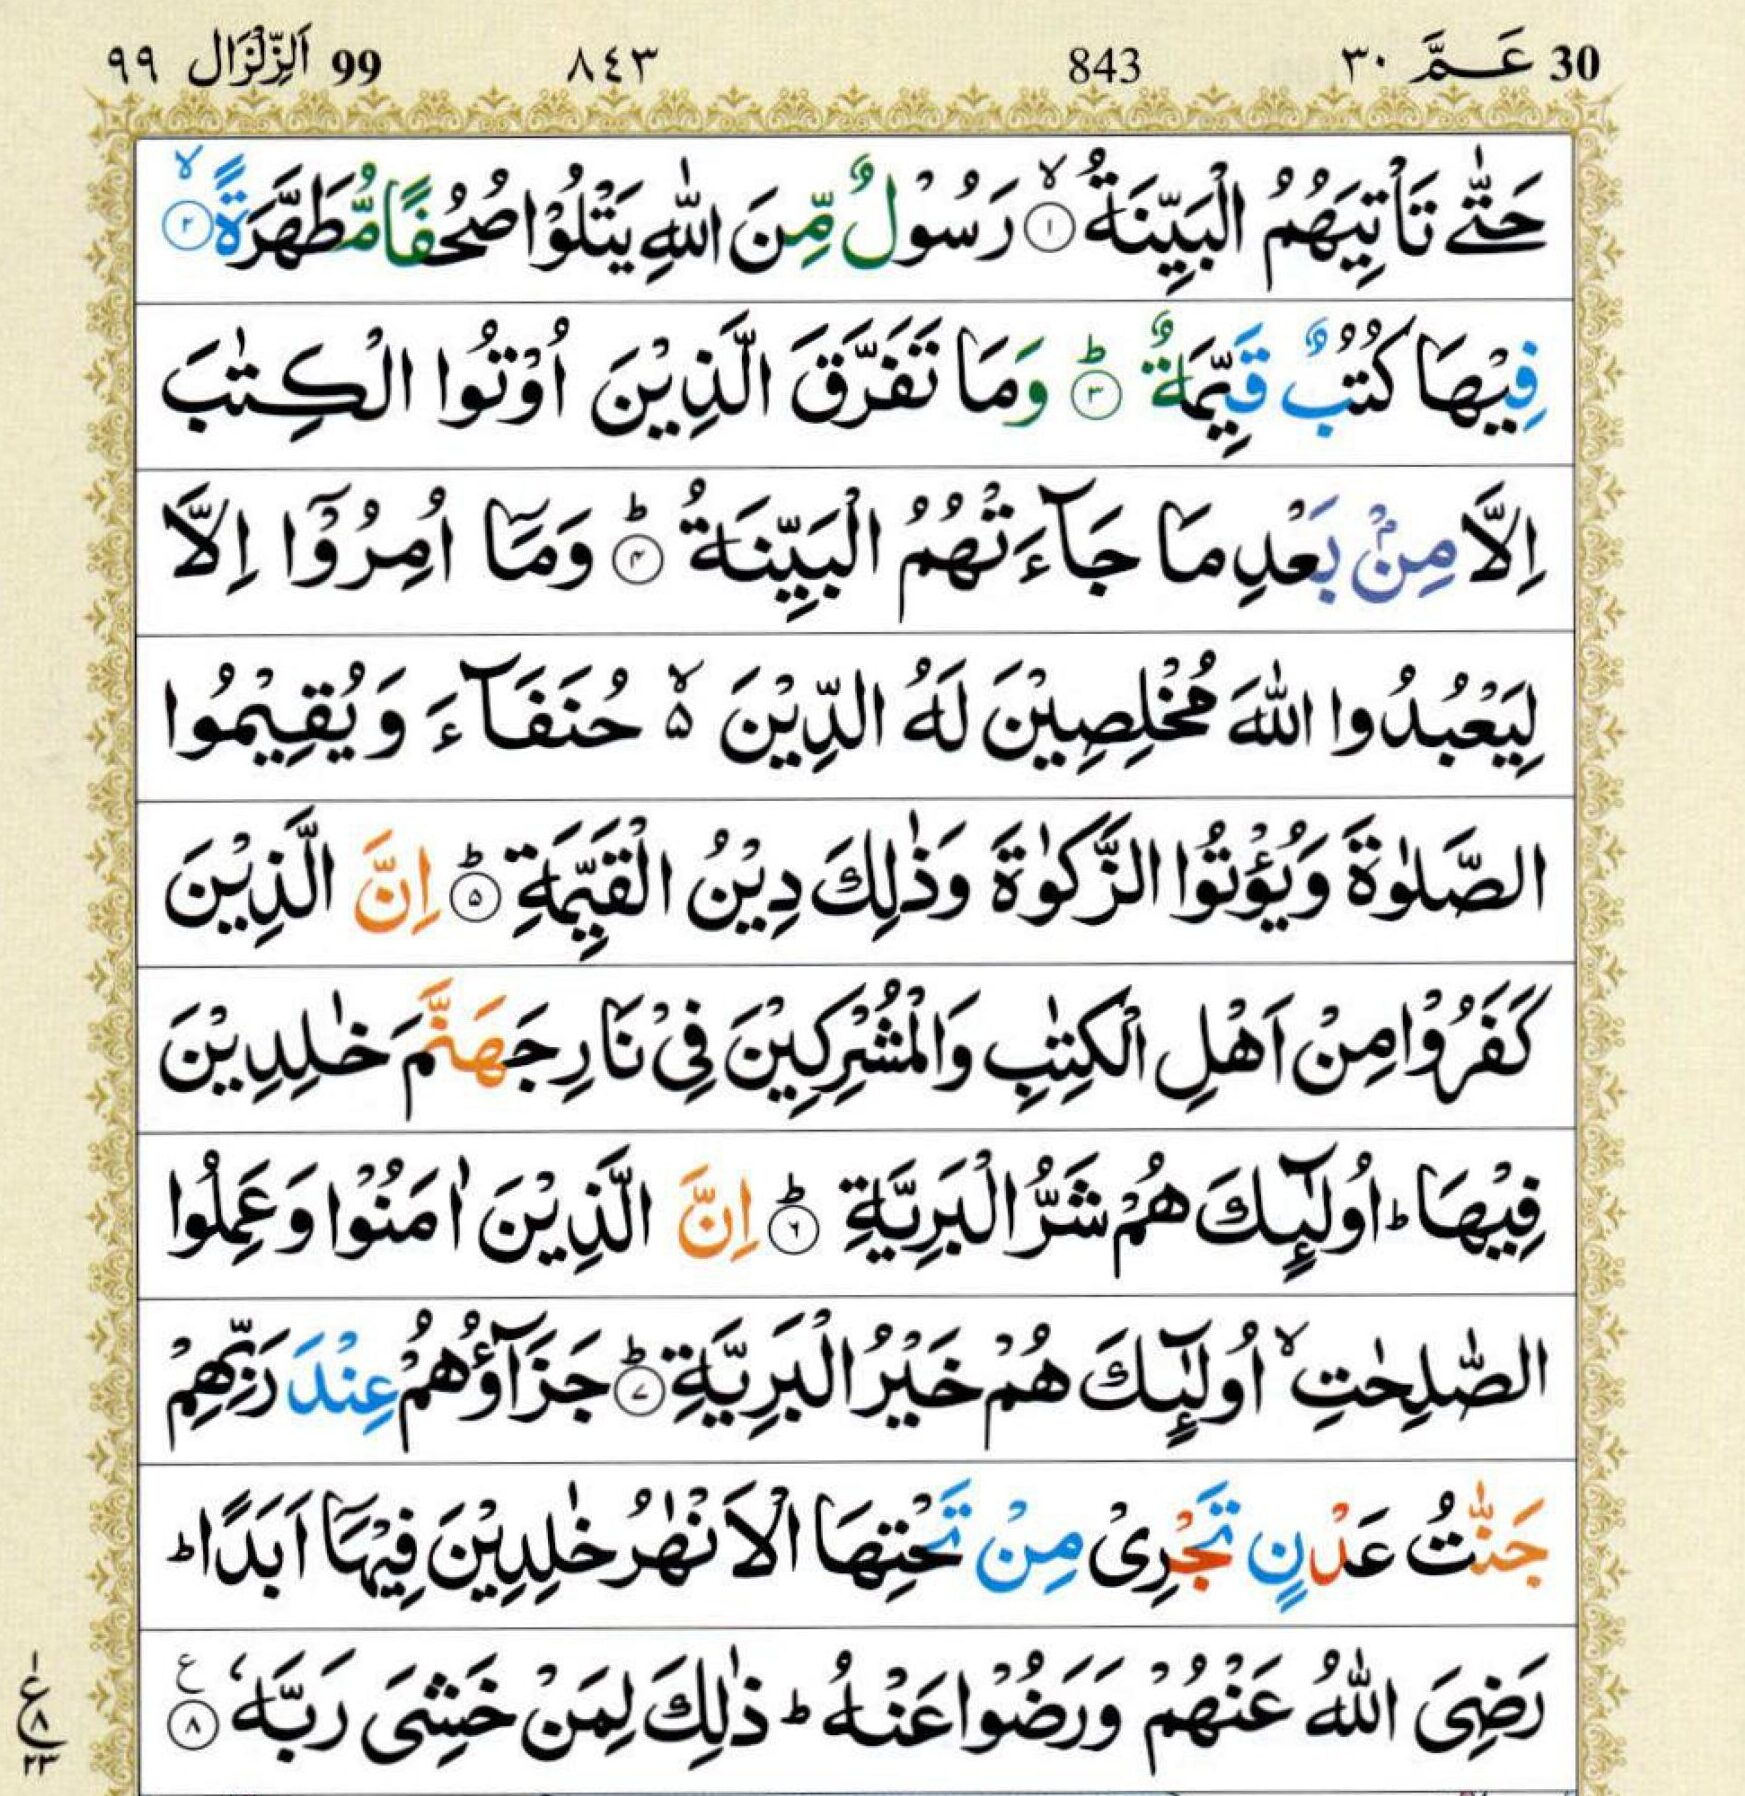 30 عَمَّ ٣٠ 843 ٨٤٣ 99 اَلزِّلْزَال ٩٩
حَتّٰى تَاْتِيَهُمُ الْبَيِّنَةُ ۙ﴿۱﴾ رَسُوْلٌ مِّنَ اللّٰهِ يَتْلُوْا صُحُفًا مُّطَهَّرَةً ۙ﴿۲﴾
فِيْهَا كُتُبٌ قَيِّمَةٌ ؕ﴿۳﴾ وَمَا تَفَرَّقَ الَّذِيْنَ اُوْتُوا الْكِتٰبَ
اِلَّا مِنْۢ بَعْدِ مَا جَآءَتْهُمُ الْبَيِّنَةُ ؕ﴿۴﴾ وَمَاۤ اُمِرُوْۤا اِلَّا
لِيَعْبُدُوا اللّٰهَ مُخْلِصِيْنَ لَهُ الدِّيْنَ ۙ۵ حُنَفَآءَ وَيُقِيْمُوا
الصَّلٰوةَ وَيُؤْتُوا الزَّكٰوةَ وَذٰلِكَ دِيْنُ الْقَيِّمَةِ ؕ﴿۵﴾ اِنَّ الَّذِيْنَ
كَفَرُوْا مِنْ اَهْلِ الْكِتٰبِ وَالْمُشْرِكِيْنَ فِىْ نَارِ جَهَنَّمَ خٰلِدِيْنَ
فِيْهَا ؕ اُولٰٓئِكَ هُمْ شَرُّ الْبَرِيَّةِ ؕ﴿۶﴾ اِنَّ الَّذِيْنَ اٰمَنُوْا وَعَمِلُوا
الصّٰلِحٰتِ ۙ اُولٰٓئِكَ هُمْ خَيْرُ الْبَرِيَّةِ ؕ﴿۷﴾ جَزَآؤُهُمْ عِنْدَ رَبِّهِمْ
جَنّٰتُ عَدْنٍ تَجْرِىْ مِنْ تَحْتِهَا الْاَنْهٰرُ خٰلِدِيْنَ فِيْهَاۤ اَبَدًا ؕ
رَضِىَ اللّٰهُ عَنْهُمْ وَرَضُوْا عَنْهُ ؕ ذٰلِكَ لِمَنْ خَشِىَ رَبَّهٗ ﴿۸﴾ ع
١
ع ٨
٢٣